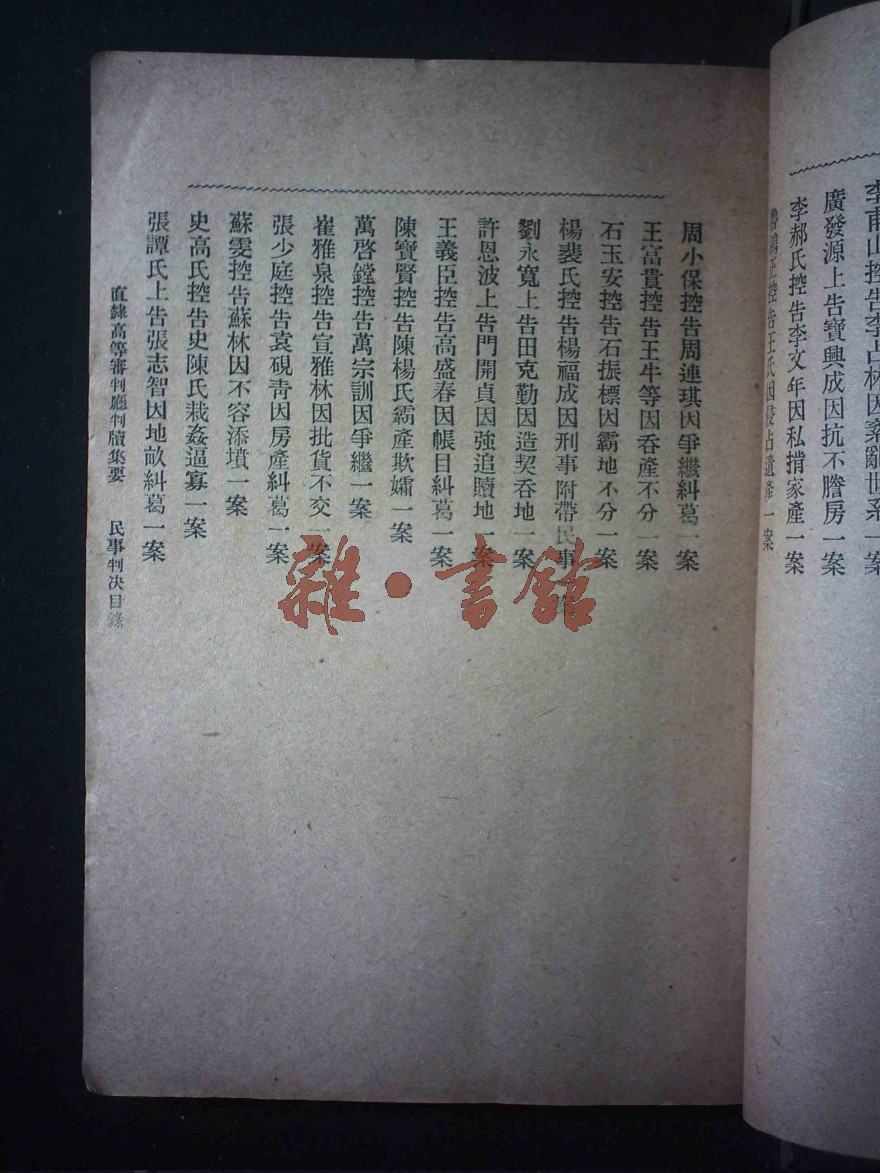 李甫山控告李占林因紊亂世系一案
廣發源上告寶興成因抗不騰房一案
李郝氏控告李文年因私揹家產一案
控告王氏因侵占遺產一案
周小保控告周連琪因爭繼糾葛一案
王富貴控告王牛等因吞產不分一案
石玉安控告石振標因霸地不分一案
楊裴氏控告楊福成因刑事附帶民事一案
劉永寬上告田克勤因造契吞地一案
許恩波上告門開貞因強追贖地一案
王義臣控告高盛春因帳目糾葛一案
陳寶賢控告陳楊氏霸產欺孀一案
萬啓鏜控告萬宗訓因爭繼一案
崔雅泉控告宣雅林因批貨不交一案
張少庭控告袁硯靑因房產糾葛一案
蘇雯控告蘇林因不容添墳一案
史高氏控告史陳氏栽姦逼寡一案
張譚氏上告張志智因地畝糾葛一案
直隸高等審判廳判牘集要 民事判決目錄
雜·書館